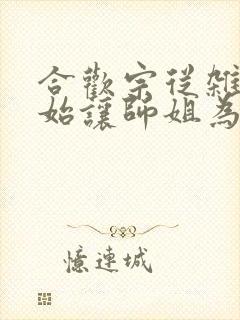 合歡宗從雜
始讓師姐為
憶連城